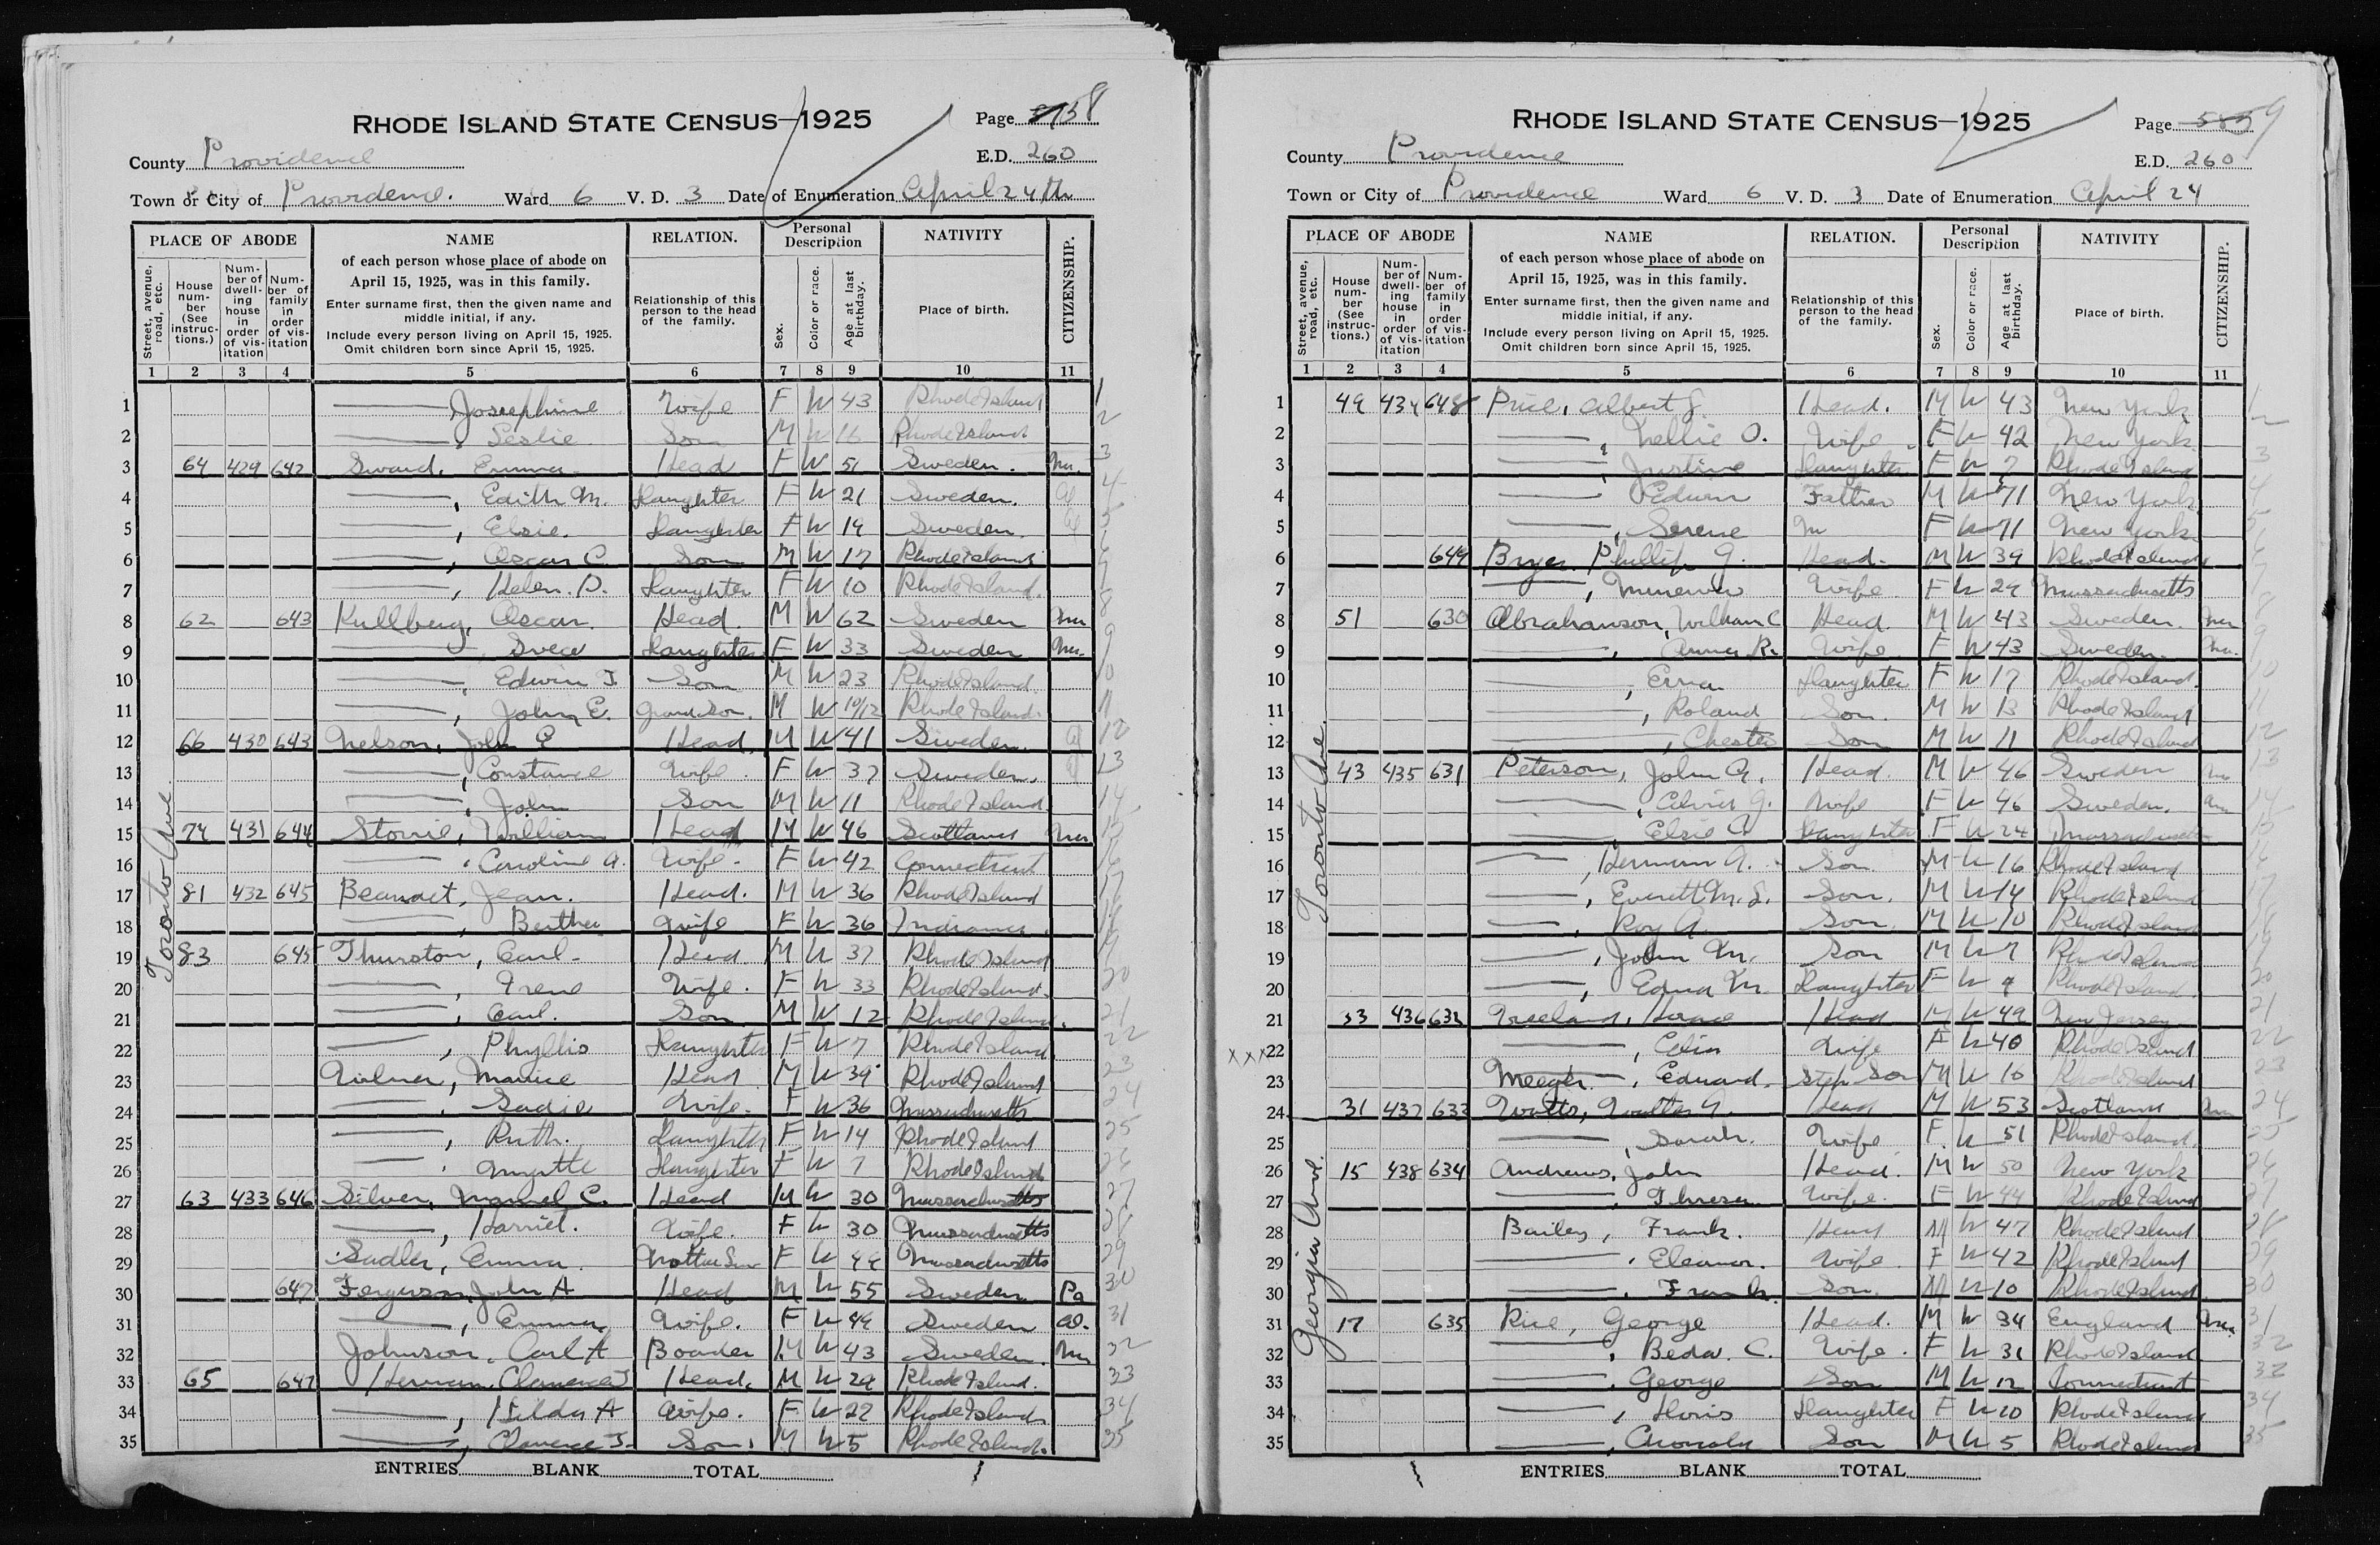 RHODE ISLAND STATE CENSUS—1925
Page 58
County Providence
E.D. 260
Town or City of Providence. Ward 6 V. D. 3 Date of Enumeration April 24th
PLACE OF ABODE
NAME
of each person whose place of abode on
April 15, 1925, was in this family.
Enter surname first, then the given name and
middle initial, if any.
Include every person living on April 15, 1925.
Omit children born since April 15, 1925.
RELATION.
Relationship of this
person to the head
of the family.
Personal
Description
NATIVITY
Place of birth.
CITIZENSHIP.
Street, avenue,
road, etc.
House
num-
ber
(See
instruc-
tions.)
Num-
ber of
dwell-
ing
house
in
order
of vis-
itation
Num-
ber of
family
in
order
of vis-
itation
Sex.
Color or race.
Age at last
birthday.
1 2 3 4 5 6 7 8 9 10 11
Toronto Ave
1 — Josephine Wife F W 43 Rhode Island 1
2 —, Leslie Son M W 16 Rhode Island 2
3 64 429 642 Sward, Emma Head F W 51 Sweden. Na. 3
4 —, Edith M. Daughter F W 21 Sweden. Al 4
5 —, Elsie. Daughter F W 19 Sweden. Al 5
6 —, Oscar C. Son M W 17 Rhode Island 6
7 —, Helen. D. Daughter F W 10 Rhode Island. 7
8 62 643 Kullberg, Oscar. Head. M W 62 Sweden Na 8
9 —, Svea Daughter F W 33 Sweden Na. 9
10 —, Edwin T Son M W 23 Rhode Island. 10
11 —, John E. Grandson. M W 10/12 Rhode Island. 11
12 66 430 643 Nelson, John E Head. M W 41 Sweden. Al 12
13 —, Constance Wife. F W 37 Sweden. Al 13
14 —, John Son M W 11 Rhode Island 14
15 74 431 644 Storrie, William Head M W 46 Scotland Na 15
16 —, Caroline A. Wife F W 42 Connecticut 16
17 81 432 645 Jean. Head. M W 36 Rhode Island 17
18 —, Bertha Wife F W 36 Indiana. 18
19 83 645 Thurston, Earl Head. M W 37 Rhode Island 19
20 —, Irene Wife. F W 33 Rhode Island. 20
21 —, Earl. Son M W 12 Rhode Island. 21
22 —, Phyllis Daughter F W 7 Rhode Island 22
23 Maurice Head M W 39 Rhode Island 23
24 —, Sadie Wife. F W 36 Massachusetts 24
25 —, Ruth. Daughter F W 14 Rhode Island 25
26 —, Myrtle Daughter F W 7 Rhode Island 26
27 63 433 646 Silver, Manuel C. Head M W 30 Massachusetts 27
28 —, Harriet. Wife. F W 30 Massachusetts 28
29 Sadler, Emma. F W Massachusetts 29
30 647 Ferguson, John A Head M W 55 Sweden Pa 30
31 —, Emma Wife. F W Sweden Al. 31
32 Johnson, Carl A Boader M W 43 Sweden. Na 32
33 65 647 Herman, Clarence T Head. M W 29 Rhode Island. 33
34 —, Hilda A Wife. F W 27 Rhode Island 34
35 —, Clarence T. Son. M W 5 Rhode Island. 35
ENTRIES BLANK TOTAL
RHODE ISLAND STATE CENSUS—1925
Page 59
County Providence
E.D. 260
Town or City of Providence Ward 6 V. D. 3 Date of Enumeration April 24
PLACE OF ABODE
NAME
of each person whose place of abode on
April 15, 1925, was in this family.
Enter surname first, then the given name and
middle initial, if any.
Include every person living on April 15, 1925.
Omit children born since April 15, 1925.
RELATION.
Relationship of this
person to the head
of the family.
Personal
Description
NATIVITY
Place of birth.
CITIZENSHIP.
Street, avenue,
road, etc.
House
num-
ber
(See
instruc-
tions.)
Num-
ber of
dwell-
ing
house
in
order
of vis-
itation
Num-
ber of
family
in
order
of vis-
itation
Sex.
Color or race.
Age at last
birthday.
1 2 3 4 5 6 7 8 9 10 11
Toronto Ave.
1 49 434 648 Price, Albert J. Head. M W 43 New York 1
2 —, Nellie O. Wife F W 42 New York 2
3 —, Justine Daughter F W 7 Rhode Island 3
4 — Edwin Father M W 71 New York 4
5 —, Serene M F W 71 New York 5
6 649 Bryer Phillip G. Head. M W 39 Rhode Island 6
7 —, Minerva Wife F W 29 Massachusetts 7
8 51 630 Abrahamson, William C Head. M W 43 Sweden. Na 8
9 —, Anna R. Wife F W 43 Sweden. Na. 9
10 —, Erna Daughter F W 17 Rhode Island. 10
11 —, Roland Son. M W 13 Rhode Island 11
12 —, Chester Son M W 11 Rhode Island 12
13 43 435 631 Peterson, John A. Head. M W 46 Sweden Na 13
14 —, J. Wife F W 46 Sweden. Na 14
15 —, Elsie C. Daughter F W 24 Massachusetts 15
16 —, Herman A. Son M W 16 Rhode Island 16
17 —, Everett M. S. Son. M W 14 Rhode Island 17
18 —, Roy A. Son. M W 10 Rhode Island 18
19 —, John M. Son M W 7 Rhode Island 19
20 —, Edna M. Daughter F W Rhode Island. 20
21 33 436 632 Vreeland, Horace Head M W 49 New Jersey 21
xxx 22 —, Celia Wife F W 40 Rhode Island 22
23 Meegh —, Edward. Step Son M W 10 Rhode Island 23
24 31 437 633 Watts, Walter Head M W 53 Scotland Na 24
Georgia Ave.
25 —, Sarah. Wife F. W 51 Rhode Island. 25
26 15 438 634 Andrews, John Head. M W 50 New York 26
27 —, Theresa Wife. F W 44 Rhode Island 27
28 Bailey, Frank. Head M W 47 Rhode Island 28
29 —, Eleanor. Wife. F W 42 Rhode Island 29
30 —, Frank. Son. M W 10 Rhode Island. 30
31 17 635 Rice, George Head. M W 34 England Na 31
32 —, Beda. C. Wife. F W 31 Rhode Island 32
33 —, George Son M W 12 Connecticut 33
34 —, Doris Daughter F W 10 Rhode Island 34
35 —, Son M W 5 Rhode Island 35
ENTRIES BLANK TOTAL